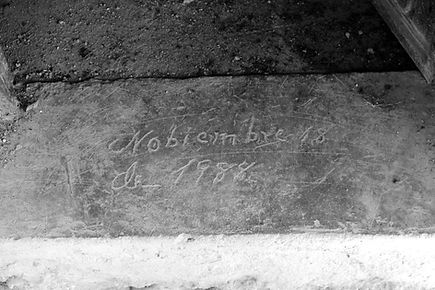 Nobiembre 18
de 1984